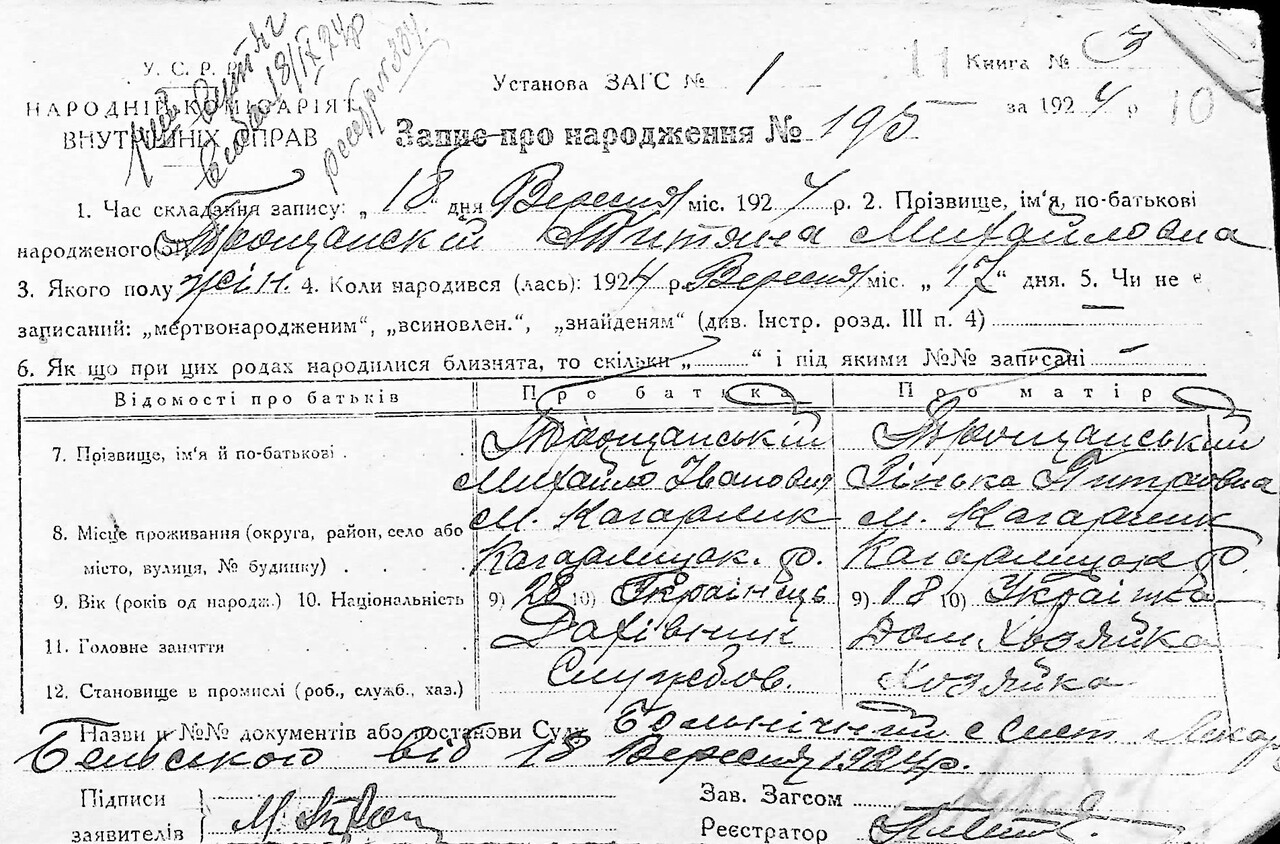 У. С. Р. Р.
НАРОДНІЙ КОМІСАРІЯТ
ВНУТРІШНІХ СПРАВ
витяг
18/IX 24р
№ 334.
Установа ЗАГС № 1
Книга № 3
за 1924 р
10
Запис про народження № 195
1. Час складання запису: „ 18 " дня Вересня міс. 1924 р. 2. Прізвище, ім'я, по-батькові
народженого Трощанскій Титяна Михайловна
3. Якого полу жін. 4. Коли народився (лась): 1924 р. Вересня міс. „ 17 " дня. 5. Чи не є
записаний: „мертвонародженим", „всиновлен.", „знайденям" (див. Інстр. розд. III п. 4) —
6. Як що при цих родах народилися близнята, то скільки „ " і під якими №№ записані —
Відомості про батьків Про батька Про матір
7. Прізвище, ім'я й по-батькові Трощанській Трощанський
Михайло Іванович Зінька
8. Місце проживання (округа, район, село або М. Кагарлик М. Кагарлик
місто, вулиця, № будинку) Кагарлицьк. р. Кагарлицьк р.
9. Вік (років од народж.) 10. Національність 9) 28 10) Українець 9) 18 10) Українка
11. Головне заняття Дом. Хозяйка
12. Становище в промислі (роб., служб., хаз.) Службов. Хозяйка
Назви и №№ документів або постанови Суду Больнічний Лист Лікар
Бельського від 18 Вересня 1924р.
Підписи
заявителів
Зав. Загсом
Реєстратор